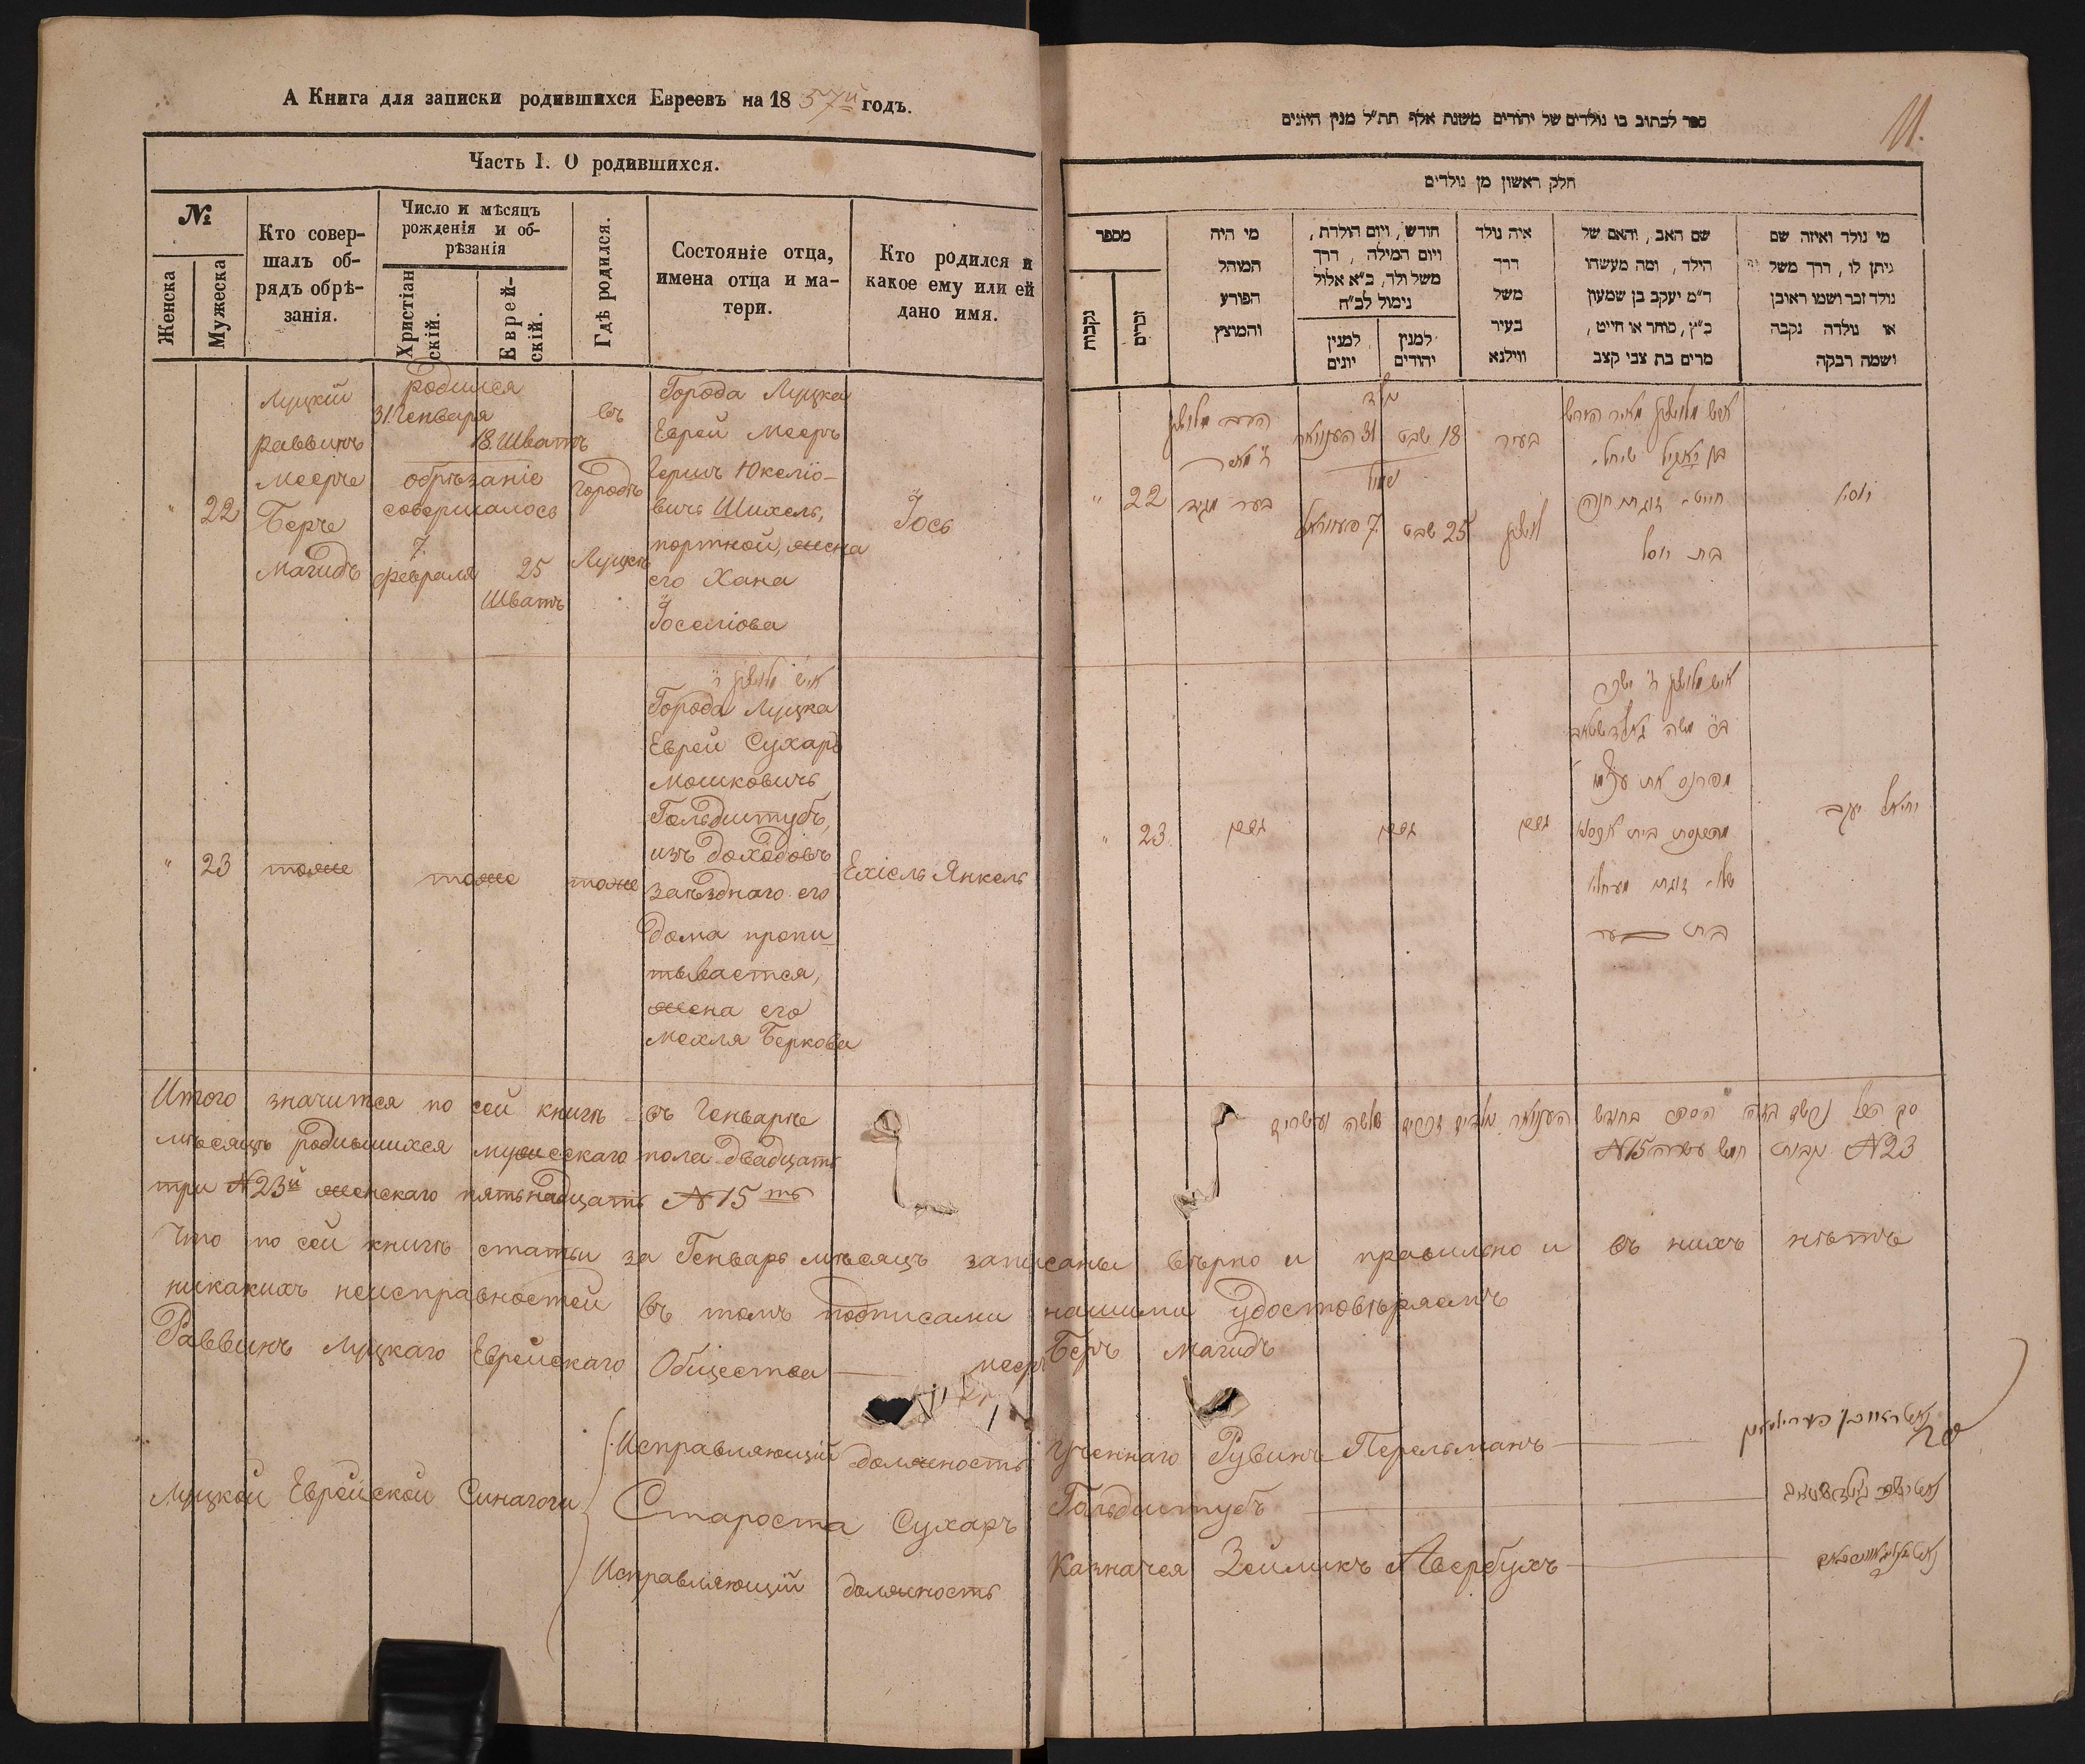 А Книга для записки родившихся Евреевъ на 1857й годъ.
Часть I. О родившихся.
№
Женска
Мужеска
Кто совер-
шалъ об-
рядъ обрѣ-
занія.
Число и мѣсяцъ
рожденія и об-
рѣзанія
Христіан
скій.
Еврей-
скій.
Гдѣ родился.
Состояніе отца,
имена отца и ма-
тери.
Кто родился и
какое ему или ей
дано имя.
"
22
Луцкій
раввинъ
Меерче
Берче
Магидъ
родился
31 Генваря
18. Шватъ
обрѣзаніе
совершалось
7.
февраля
25
Шватъ
въ
Городѣ
Луцкѣ
Города Луцка
Еврей Мееръ
Гершъ Юкеліо-
вичъ Шихель,
портной, жена
его Хана
Іоселіова
Іось
"
23
тоже
тоже
тоже
Города Луцка
Еврей Сухаръ
Мошковичъ
Гольдштубъ,
изъ доходовъ
заѣзднаго его
дома пропи-
тывается,
жена его
Мехля Беркова
Ехіель Янкель
Итого значится по сей книгѣ въ Генварѣ
мѣсяцѣ родившихся мужескаго пола двадцать
три №23й женскаго пятьнадцать №15ть
Что по сей книгѣ статьи за Генварь мѣсяцъ записаны вѣрно и правильно и въ нихъ нѣтъ
никакихъ неисправностей въ томъ подписами нашими удостовѣряемъ
Раввинъ Луцкаго Еврейскаго Общества Мееръ Беръ Магидъ
Луцкой Еврейской Синагоги
Исправляющій должность Ученнаго Рувинъ Перельманъ
Староста Сухаръ Гольдштубъ
Исправляющій должность Казначея Зейликъ Авербухъ
11.
ספר לכתוב בו נולדים של יהודים משנת אלף תת״ל מנין היונים
חלק ראשון מן נולדים
מספר
נקבות
זכרים
מי היה
המוהל
הפורע
והמוצץ
חודש, ויום הולדת,
ויום המילה, דרך
משל ולד, כ״א אלול
נימול לכ״ח
למנין
יונים
למנין
יהודים
איה נולד
דרך
משל
בעיר
ווילנא
שם האב, והאם של
הילד, ומה מעשהו
ר״מ יעקב בן שמעון
כ״ץ, סוחר או חייט,
מרים בת צבי קצב
מי נולד ואיזה שם
ניתן לו, דרך משל
נולד זכר ושמו ראובן
או נולדה נקבה
ושמה רבקה
"
22
הרב מלוצק
בער מגיד
נולד
31 העננוואר
18 שבט
נימול
7 פעווראל
25 שבט
בעיר
לוצק
איש מלוצק מאיר הירש
שיחל.
חייט - זוגתו חנה
בת יוסל
יוסל
"
23
איש מלוצק ר׳
בר׳ משה גאלדשטאב
מפרנס את עצמו
מהכנסת בית אכסניא
שלו - זוגתו מעחלא
בת בער
יחיאל יעקב
№23 נקבות חמש עשרה №15